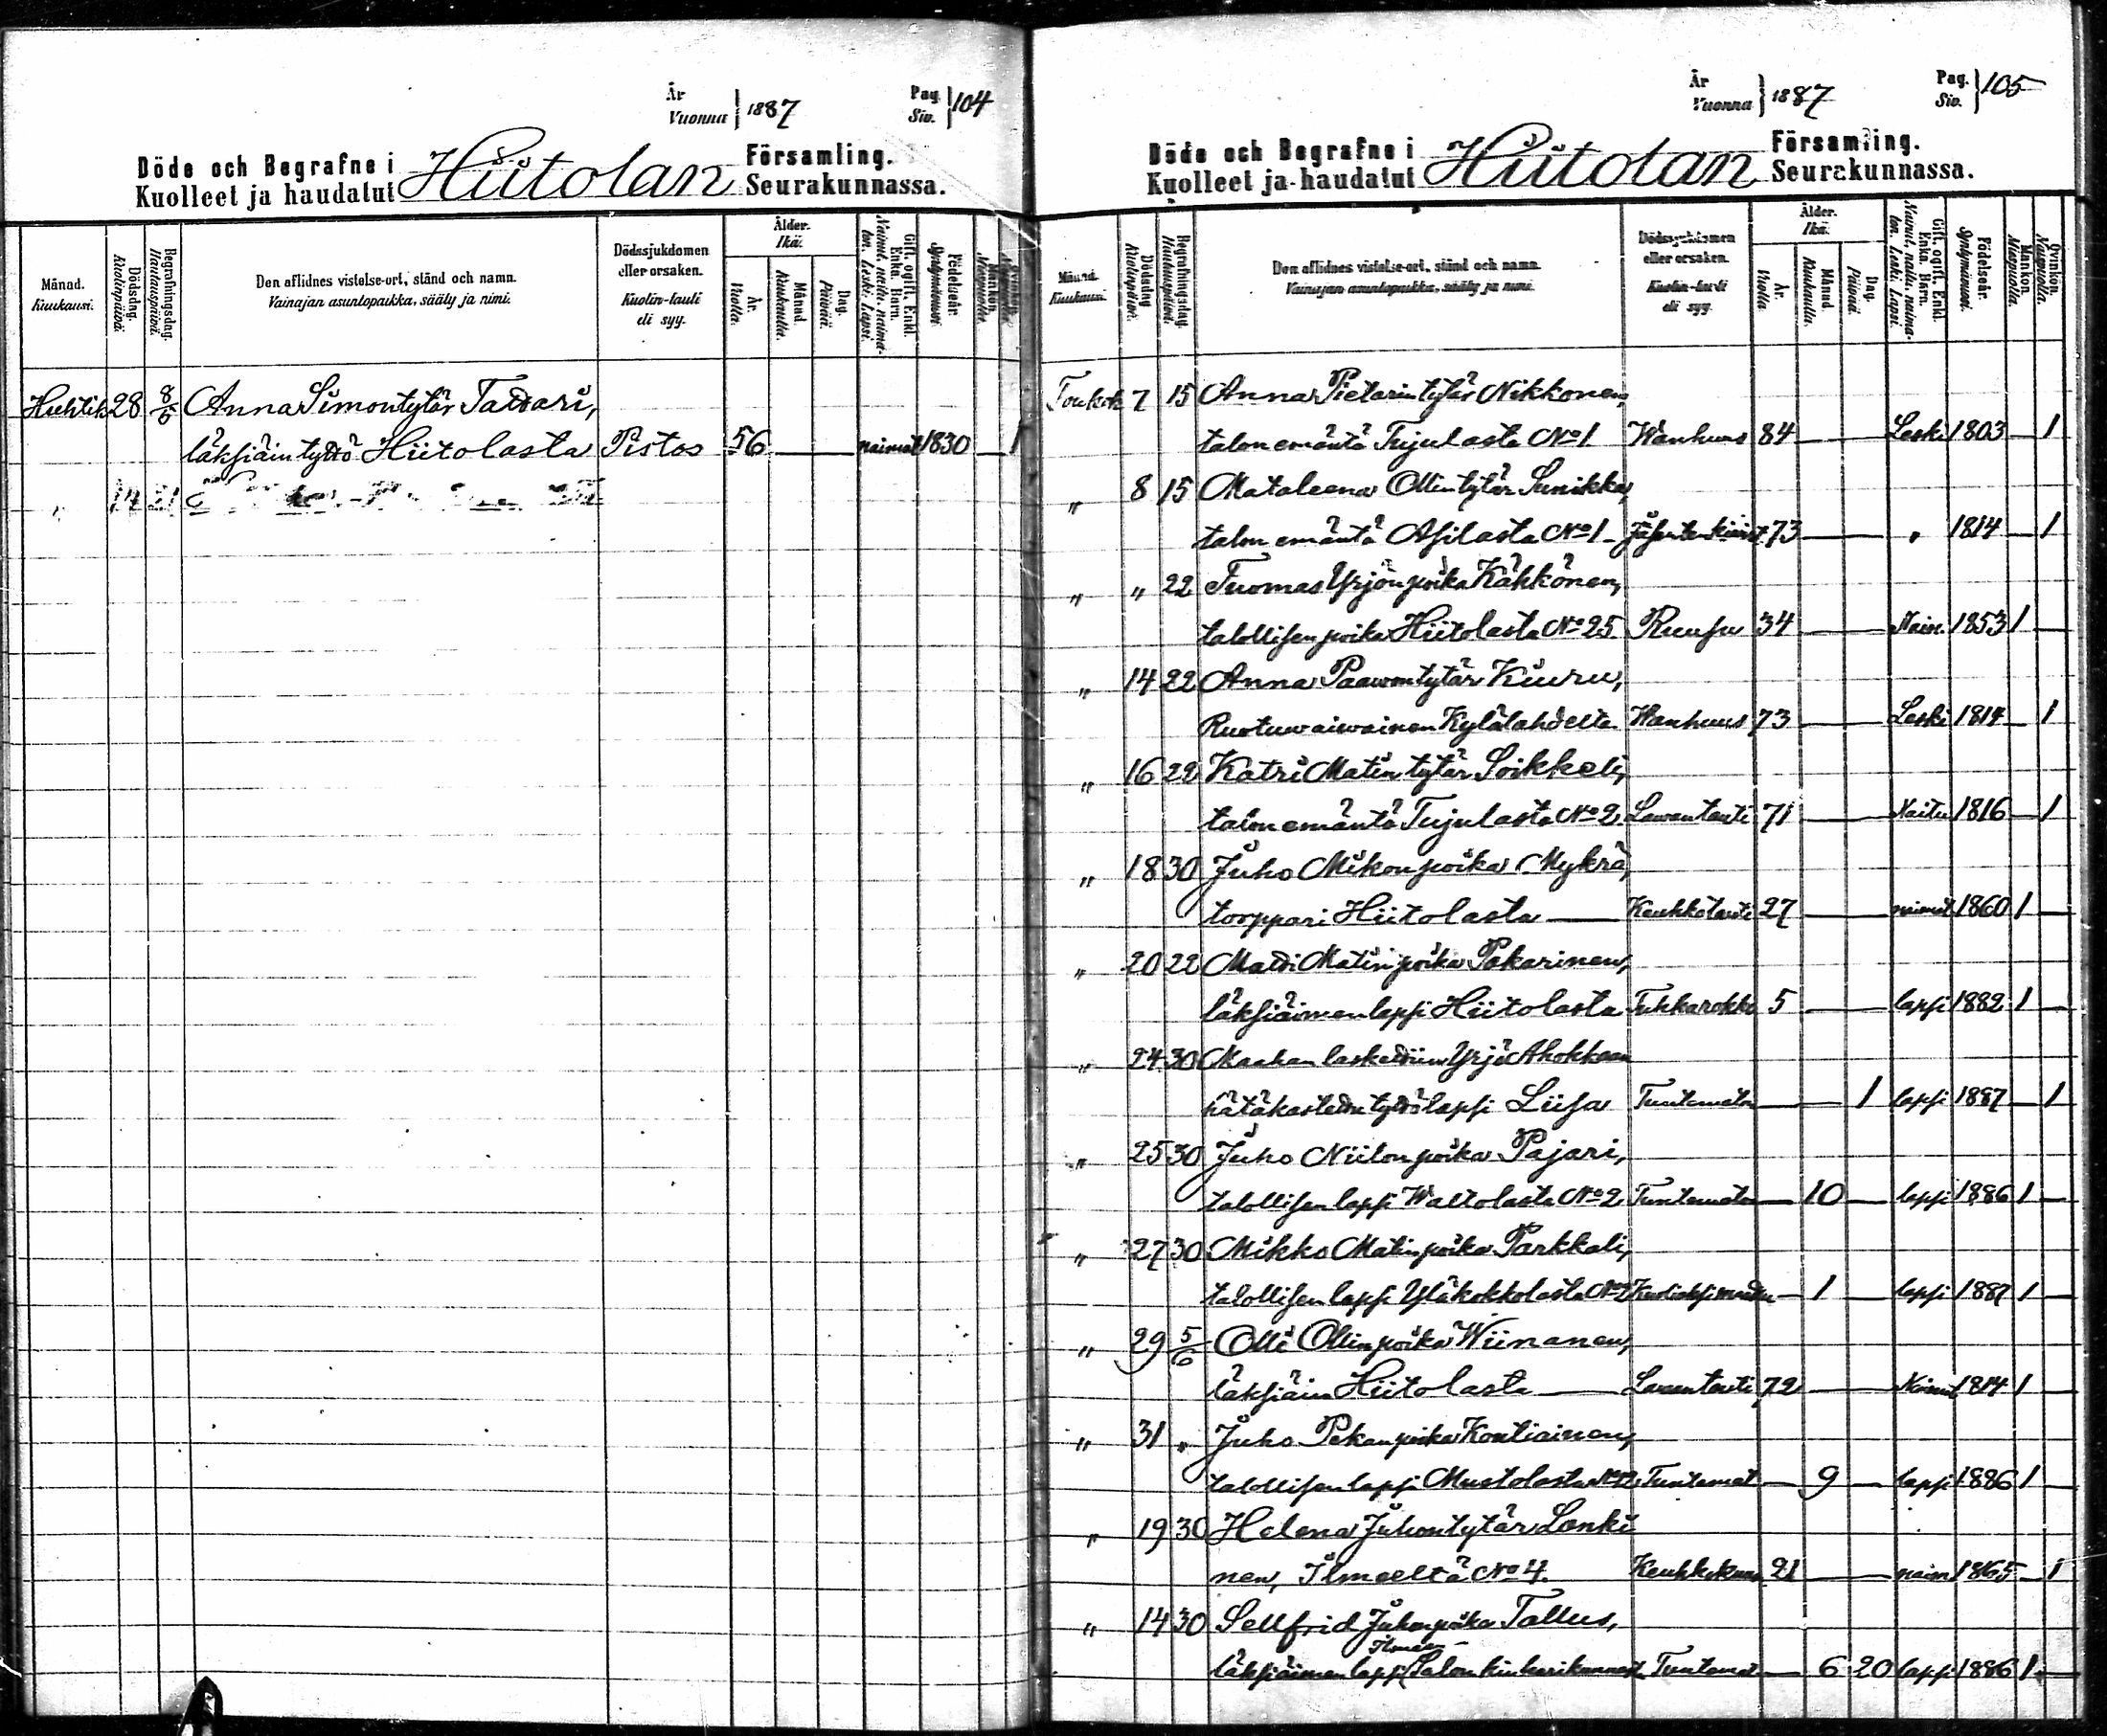 År
Vuonna 1887
Pag.
Siv. 104
Döde och Begrafne i Hiitolan Församling.
Kuolleet ja haudatut Seurakunnassa.
Månad.
Kuukausi.
Dödsdag.
Kuolinpäivä.
Begrafningsdag.
Hautauspäivä.
Den aflidnes vistelse-ort, stånd och namn.
Vainajan asuntopaikka, sääty ja nimi.
Dödssjukdomen
eller orsaken.
Kuolin-tauti
eli syy.
Ålder.
Ikä.
År.
Vuotta.
Månad.
Kuukautta.
Dag.
Päivää.
Gift, ogift, Enkl.
Enka, Barn.
Nainut, naitu, naima-
ton, Leski, Lapsi.
Födelseår.
Syntymävuosi.
Mankön.
Miespuolia.
Qvinkön.
Huhtik 28 8/5 Anna Simontytär Tattari,
läksiäin tyttö Hiitolasta Pistos 56 naimat 1830 1
" 14 21
År
Vuonna 1887
Pag.
Siv. 105
Döde och Begrafne i Hiitolan Församling.
Kuolleet ja haudatut Seurakunnassa.
Månad.
Kuukausi.
Dödsdag.
Kuolinpäivä.
Begrafningsdag.
Hautauspäivä.
Den aflidnes vistelse-ort, stånd och namn.
Vainajan asuntopaikka, sääty ja nimi.
Dödssjukdomen
eller orsaken.
Kuolin-tauti
eli syy.
Ålder.
Ikä.
År.
Vuotta.
Månad.
Kuukautta.
Dag.
Päivää.
Gift, ogift, Enkl.
Enka, Barn.
Nainut, naitu, naima-
ton, Leski, Lapsi.
Födelseår.
Syntymävuosi.
Mankön.
Miespuolia.
Qvinkön.
Naispuolia.
Toukok 7 15 Anna Pietarintytär Nikkonen,
talon emäntä Tiijulasta No 1 Wanhuus 84 Leski 1803 1
" 8 15 Mataleena Ollintytär Sunikka,
talon emäntä Asilasta No 1 73 " 1814 1
" " 22 Tuomas Yrjönpoika Kähkönen,
talollisen poika Hiitolasta No 25 Ruusu 34 Nain. 1853 1
" 14 22 Anna Paawontytär Kiuru,
Ruotuwaiwainen Kylälahdelta Wanhuus 73 Leski 1814 1
" 16 22 Katri Matintytär Soikkeli,
talon emäntä Tiijulasta No 2 Lawantauti 71 Naitu 1816 1
" 18 30 Juho Mikonpoika Mykrä,
torppari Hiitolasta Keuhkotauti 27 naimat 1860 1
" 20 22 Matti Matinpoika Pakarinen,
läksiäimen lapsi Hiitolasta Tuhkarokko 5 lapsi 1882 1
" 24 30 Maahan laskettiin Yrjö Ahokkaan
hätäkastettu tyttölapsi Liisa Tuntematon 1 lapsi 1887 1
" 25 30 Juho Niilonpoika Pajari,
talollisen lapsi Waltolasta No 2 Tuntematon 10 lapsi 1886 1
" 27 30 Mikko Matinpoika Parkkali,
talollisen lapsi Yläkokkolasta No 2 1 lapsi 1887 1
" 29 5/6 Olli Ollinpoika Wiinanen,
läksiäin Hiitolasta Lawantauti 72 Nainut 1814 1
" 31 " Juho Pekanpoika Kontiainen,
talollisen lapsi Mustolasta No 2 Tuntemat 9 lapsi 1886 1
" 19 30 Helena Juhontytär Lonki
nen, Ilmeeltä No 4. 21 naim 1865 1
" 14 30 Sellfrid Juhonpoika Tallus,
Ilmeen
läksiäimen lapsi Salon kinkerikunnasta Tuntemat 6 20 lapsi 1886 1